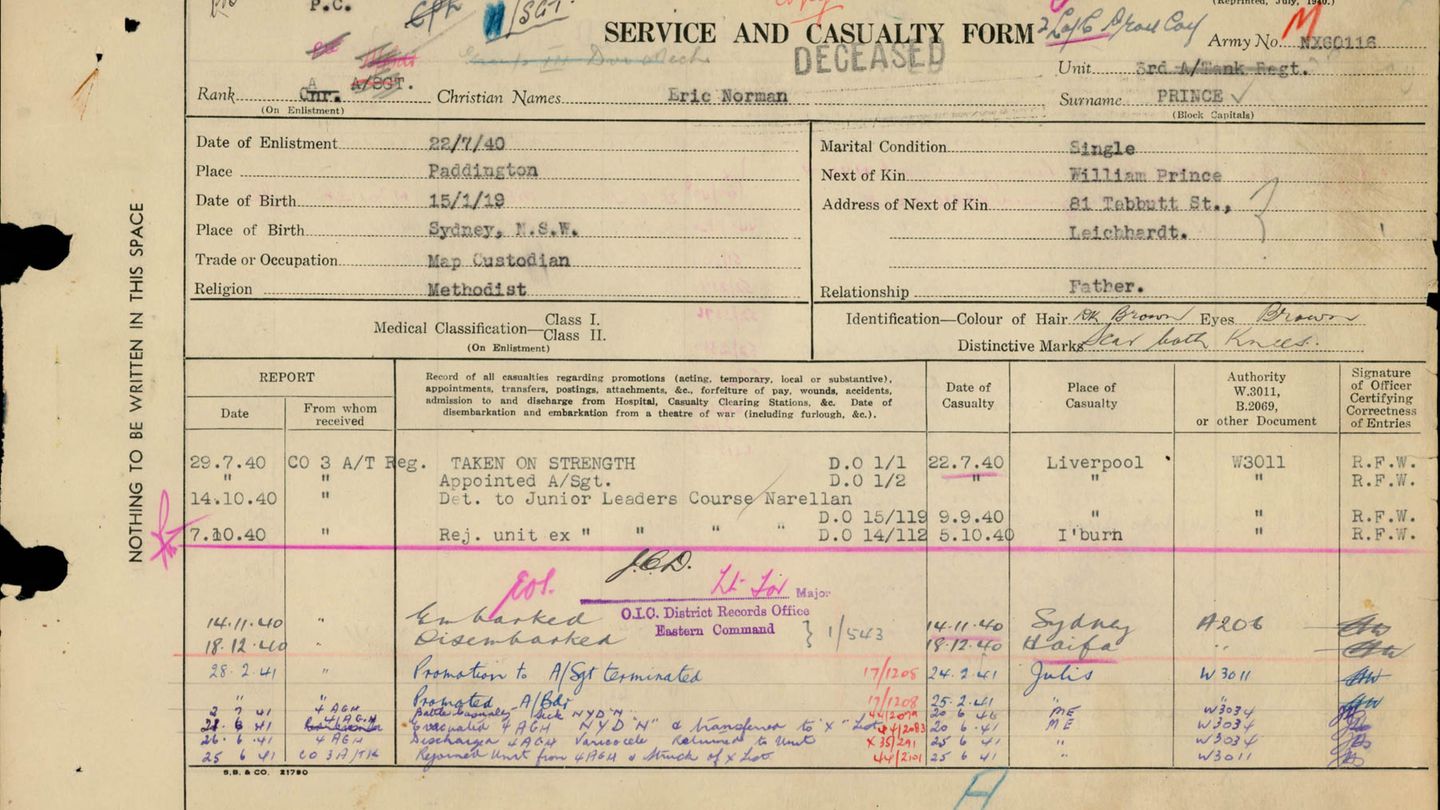 P.C.
/SGT.
(Reprinted, July, 1940.)
SERVICE AND CASUALTY FORM
DECEASED
M
Army No. NX60116
Unit 3rd A/Tank Regt.
A A/SGT.
Rank Gnr. Christian Names Eric Norman Surname PRINCE
(On Enlistment) (Block Capitals)
NOTHING TO BE WRITTEN IN THIS SPACE
Date of Enlistment 22/7/40
Place Paddington
Date of Birth 15/1/19
Place of Birth Sydney, N.S.W.
Trade or Occupation Map Custodian
Religion Methodist
Marital Condition Single
Next of Kin William Prince
Address of Next of Kin 81 Tebbutt St.,
Leichhardt.
Relationship Father.
Medical Classification—Class I.
Class II.
(On Enlistment)
Identification—Colour of Hair DK Brown Eyes Brown
Distinctive Marks Scar both Knees.
REPORT
Date
From whom received
Record of all casualties regarding promotions (acting, temporary, local or substantive),
appointments, transfers, postings, attachments, &c., forfeiture of pay, wounds, accidents,
admission to and discharge from Hospital, Casualty Clearing Stations, &c. Date of
disembarkation and embarkation from a theatre of war (including furlough, &c.).
Date of Casualty
Place of Casualty
Authority W.3011, B.2069, or other Document
Signature of Officer Certifying Correctness of Entries
29.7.40 CO 3 A/T Reg. TAKEN ON STRENGTH D.O 1/1 22.7.40 Liverpool W3011 R.F.W.
" " Appointed A/Sgt. D.O 1/2 " " " R.F.W.
14.10.40 " Det. to Junior Leaders Course Narellan
D.O 15/119 9.9.40 " " R.F.W.
7.10.40 " Rej. unit ex " " " " D.O 14/112 5.10.40 I'burn " R.F.W.
J.C.D.
Lt for Major
O.I.C. District Records Office
Eastern Command
14.11.40 " Embarked 14.11.40 Sydney A206
18.12.40 Disembarked } 1/543 18.12.40 Haifa "
28.2.41 " Promotion to A/Sgt terminated 17/1208 24.2.41 Julis W3011
" " Promoted A/Bdr 17/1208 25.2.41 " "
2 7 41 4 AGH Battle Casualty Sick NYD "N" 44/2079 20 6 41 ME W3034
28.6.41 4 AGH Evacuated 4 AGH NYD "N" & transferred to "X" List 44/2083 20 6.41 ME W3034
26.6.41 4 AGH Discharged 4 AGH Varicocele Returned to Unit X 35/291 25 6 41 " W3034
25 6 41 CO 3A/TK Rejoined Unit from 4 AGH & Struck of X List 44/2101 25 6 41 " W3011
S.B. & CO. 21790